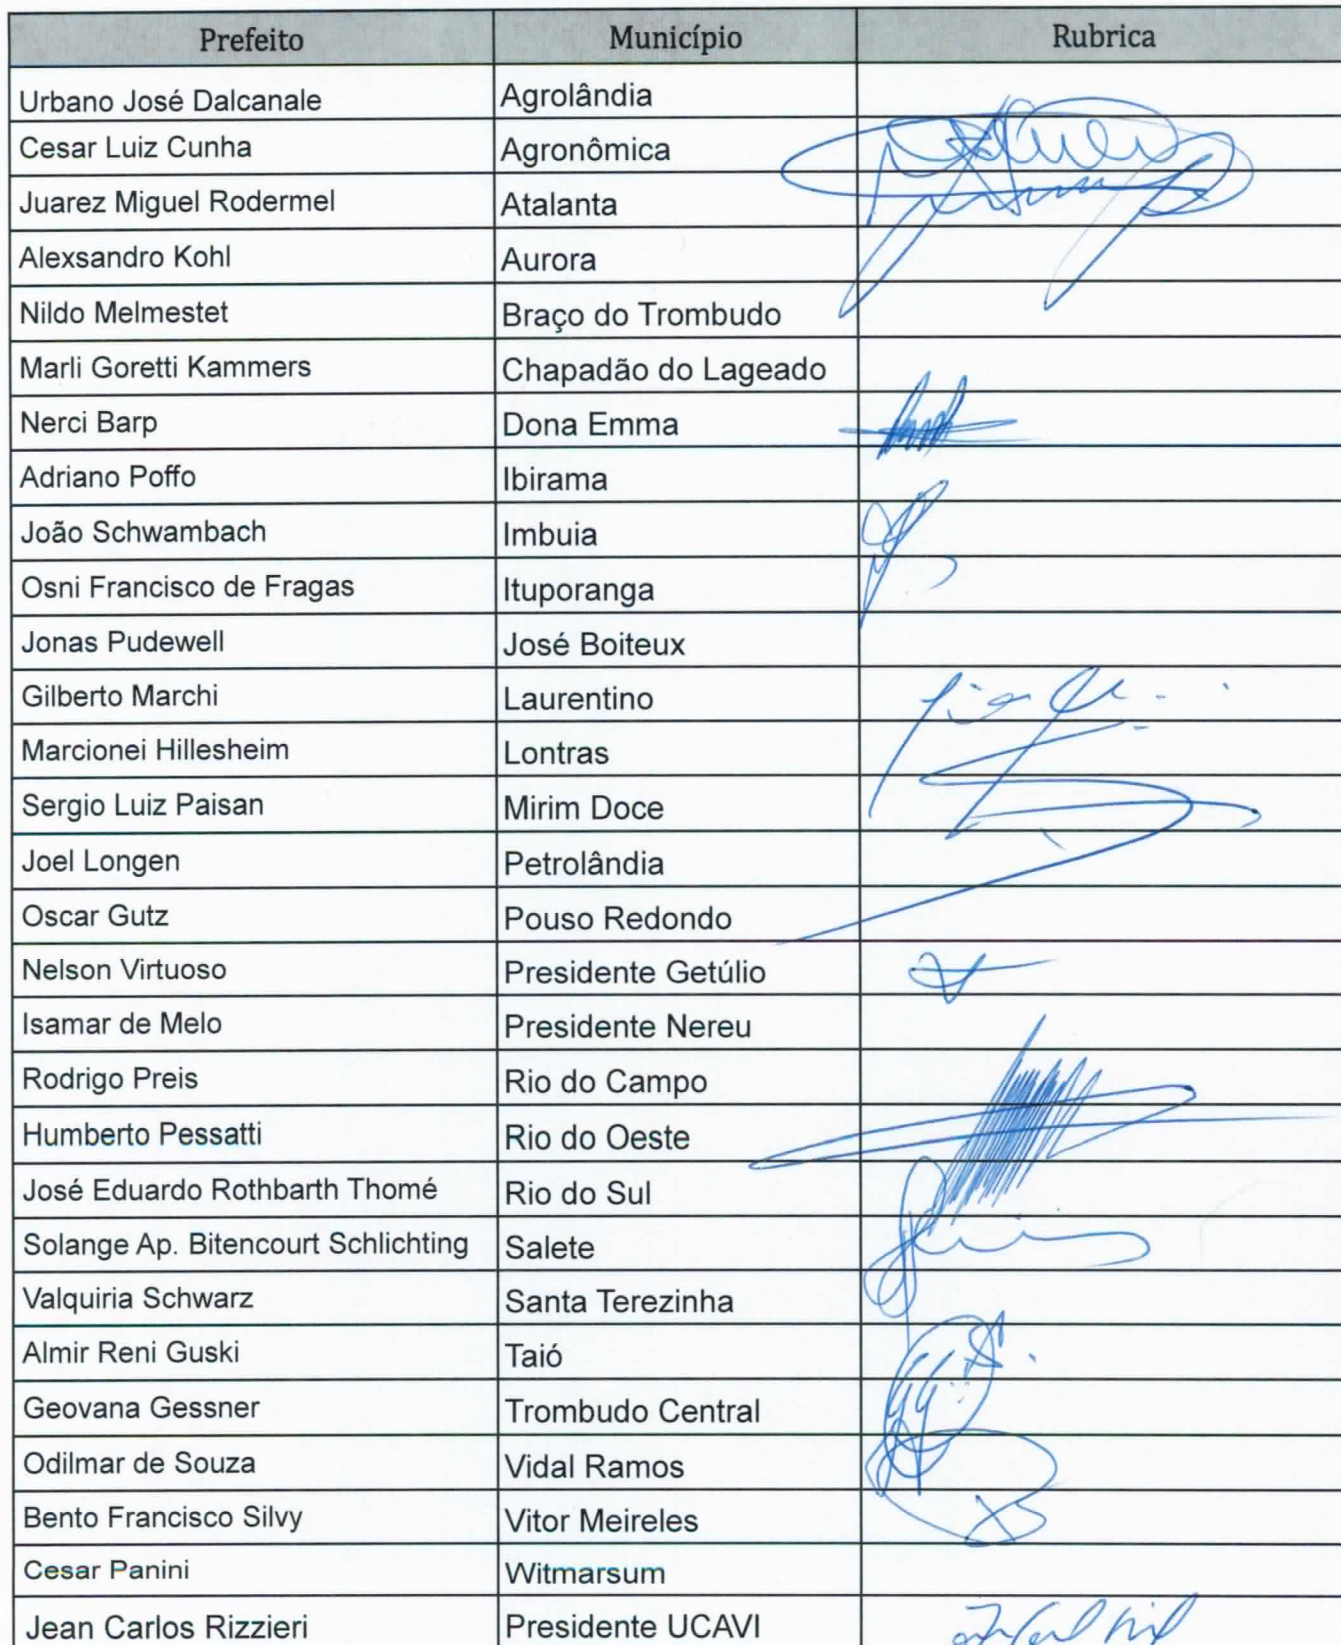 Prefeito Município Rubrica
Urbano José Dalcanale Agrolândia
Cesar Luiz Cunha Agronômica
Juarez Miguel Rodermel Atalanta
Alexsandro Kohl Aurora
Nildo Melmestet Braço do Trombudo
Marli Goretti Kammers Chapadão do Lageado
Nerci Barp Dona Emma
Adriano Poffo Ibirama
João Schwambach Imbuia
Osni Francisco de Fragas Ituporanga
Jonas Pudewell José Boiteux
Gilberto Marchi Laurentino
Marcionei Hillesheim Lontras
Sergio Luiz Paisan Mirim Doce
Joel Longen Petrolândia
Oscar Gutz Pouso Redondo
Nelson Virtuoso Presidente Getúlio
Isamar de Melo Presidente Nereu
Rodrigo Preis Rio do Campo
Humberto Pessatti Rio do Oeste
José Eduardo Rothbarth Thomé Rio do Sul
Solange Ap. Bitencourt Schlichting Salete
Valquiria Schwarz Santa Terezinha
Almir Reni Guski Taió
Geovana Gessner Trombudo Central
Odilmar de Souza Vidal Ramos
Bento Francisco Silvy Vitor Meireles
Cesar Panini Witmarsum
Jean Carlos Rizzieri Presidente UCAVI